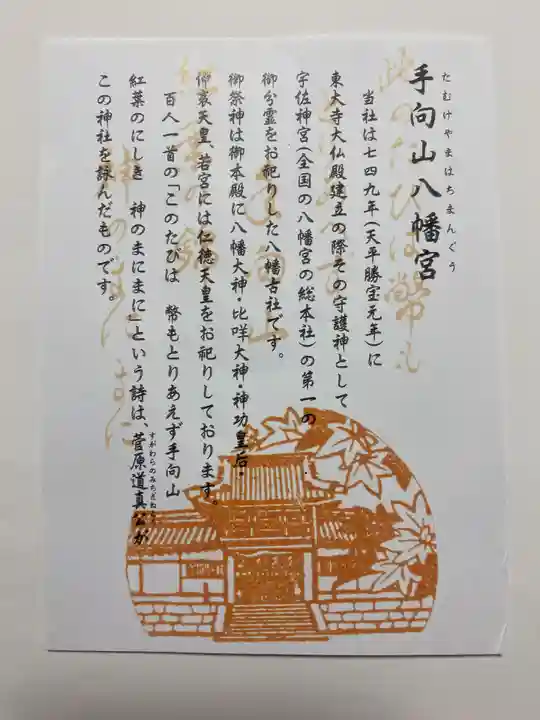 たむけやまはちまんぐう
手向山八幡宮
当社は七四九年(天平勝宝元年)に
東大寺大仏殿建立の際その守護神として
宇佐神宮(全国の八幡宮の総本社)の第一の
御分霊をお祀りした八幡古社です。
御祭神は御本殿に八幡大神・比咩大神・神功皇后・
仲哀天皇、若宮には仁徳天皇をお祀りしております。
百人一首の「このたびは 幣もとりあえず手向山
紅葉のにしき 神のまにまに」という詩は、菅原道真公が
すがわらのみちざねこう
この神社を詠んだものです。
此のたびは幣も
手向山
紅葉の錦
神のまにまに